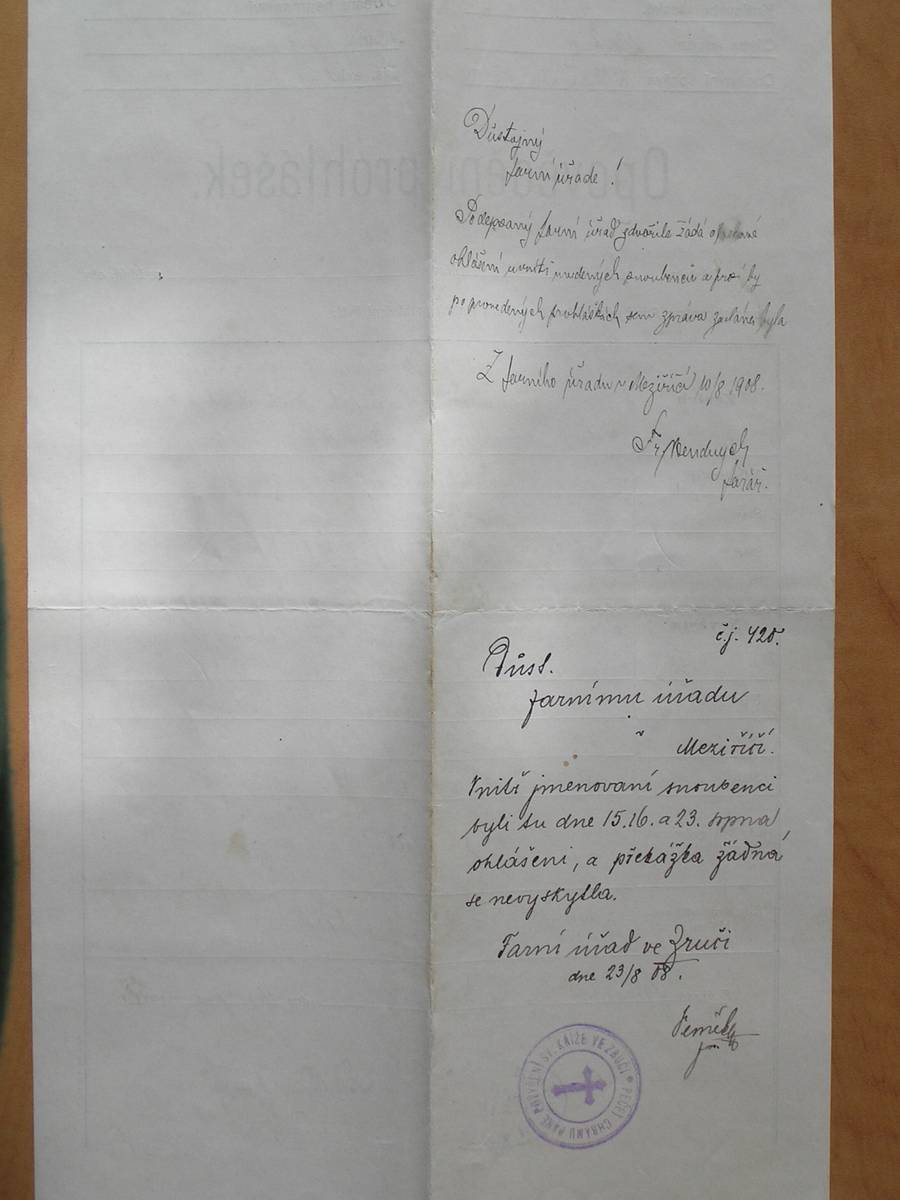 Důstojný
farní úřade!
Podepsaný farní úřad zdvořile žádá
ohlášení uvnitř uvedených snoubenců a prosí by
po provedených prohláškách sem zpráva zaslána byla
Z farního úřadu v Meziříčí 10/8 1908.
Fr.
farář.
č.j. 420.
Důst.
farnímu úřadu
v
Meziříčí.
Vnitř jmenovaní snoubenci
byli tu dne 15. 16. a 23. srpna
ohlášeni, a překážka žádná
se nevyskytla.
Farní úřad ve Zruči
dne 23/8 08.
PEČEŤ CHRÁMU PÁNĚ POVÝŠENÍ SV. KŘÍŽE VE ZRUČI